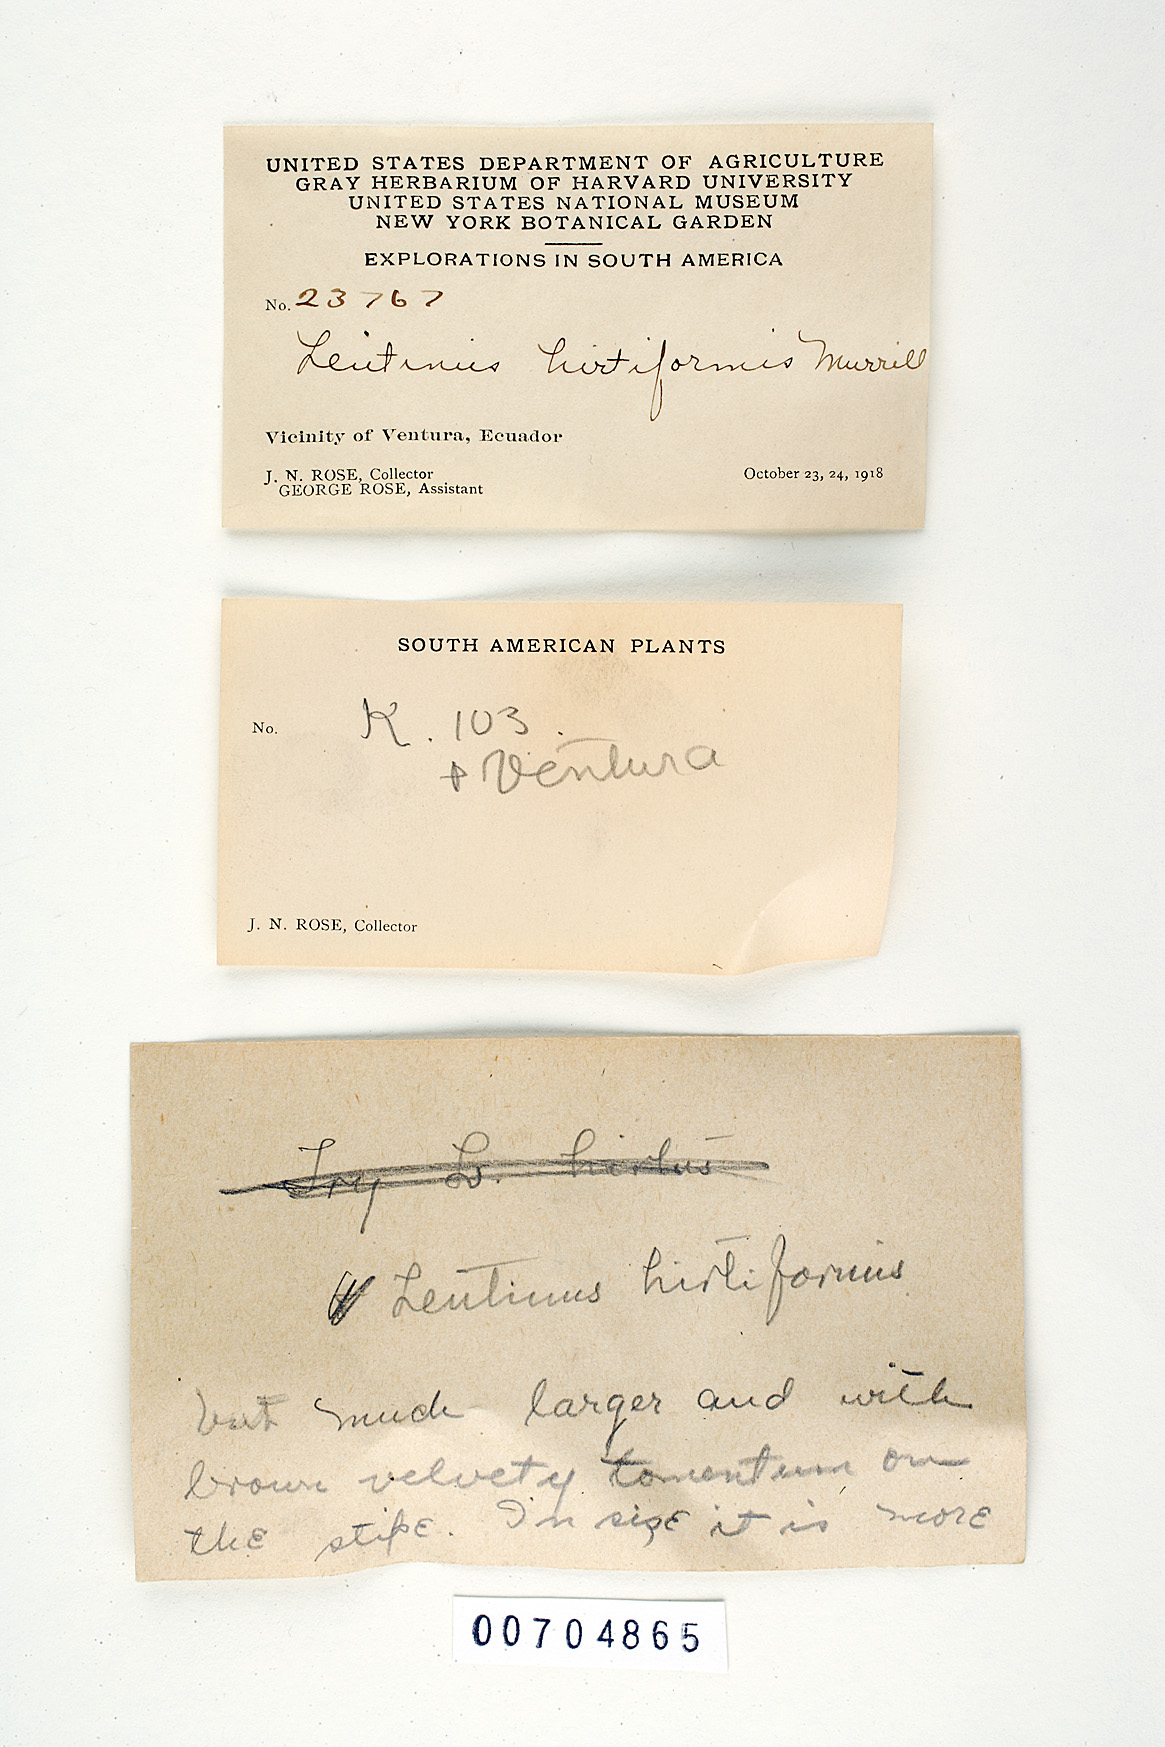 UNITED STATES DEPARTMENT OF AGRICULTURE
GRAY HERBARIUM OF HARVARD UNIVERSITY
UNITED STATES NATIONAL MUSEUM
NEW YORK BOTANICAL GARDEN
EXPLORATIONS IN SOUTH AMERICA
No. 23767
Lentinus hirtiformis Murrill
Vicinity of Ventura, Ecuador
J. N. ROSE, Collector
GEORGE ROSE, Assistant
October 23, 24, 1918
SOUTH AMERICAN PLANTS
No. K. 103.
Ventura
J. N. ROSE, Collector
Try L. hirtus
Lentinus hirtiformis
but much larger and with
brown velvety tomentum on
the stipe. In size it is more
00704865